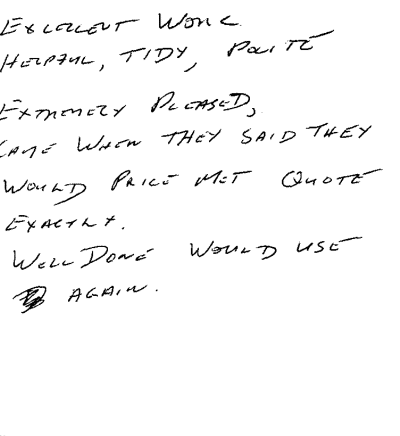 EXCELLENT WORK
HELPFUL, TIDY, POLITE
EXTREMELY PLEASED,
CAME WHEN THEY SAID THEY
WOULD PRICE MET QUOTE
EXACTLY.
WELL DONE WOULD USE
AGAIN.